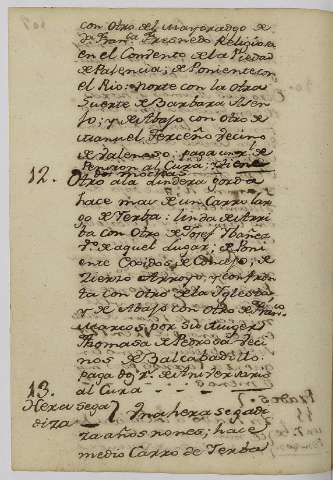 con otro del Mayoradgo de
Dª Franca Fresnedo Religiosa
en el Convento de la Piedad
de Palencia; de Poniente con
el Rio: Norte con la otra
suerte de Barbara Asen-
jo; y de Abajo con otro de
Manuel Terceño vecino
de Valenedo, paga un rl. de
Pension al Cura: tiene
dos mochas
12. Otro a la dindera gorda
hace mas de un Carro lar-
go de Yerba: linda de Arri-
ba con otro de Josef Ibañez
vº. de aquel lugar; de Poni-
ente Exidos de Concejo; de
Zierzo Arroyo, y confron-
ta con otro de la Iglesia
y de Abajo con otro de Franco
Marcos, por su Muger
Thomasa de Pedrosa veci-
nos de Balcabadillo
paga dos rs. de Aniversario
al Cura
13.
Hera sega
diza
Una hera segadi-
za años nones; hace
medio Carro de Yerba